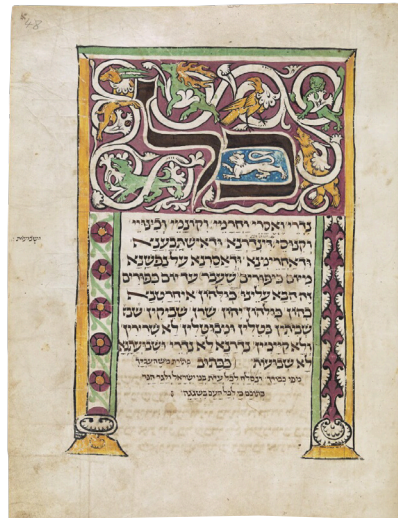 48
כל
נדרי ואסרי וחרמי וקונמי וכינויי
וקנוסי דינדרנא ודאישתבענא
ודאחרימנא ודאסרנא על נפשנא
מיום כיפורים שעבר עד יום כפורים
זה הבא עלינו בכולהון איחרטנא
בהון כולהון יהון שרן שביקין שבי
שביתין בטלין ומבוטלין לא שרירין
ולא קיימין נדרנא לא נדרי ושבועתנא
לא שבועות ככתוב בתורת משה עבדך
מפי כבודך ונסלח לכל עדת בני ישראל ולגר הגר
בתוכם כי לכל העם בשגגה